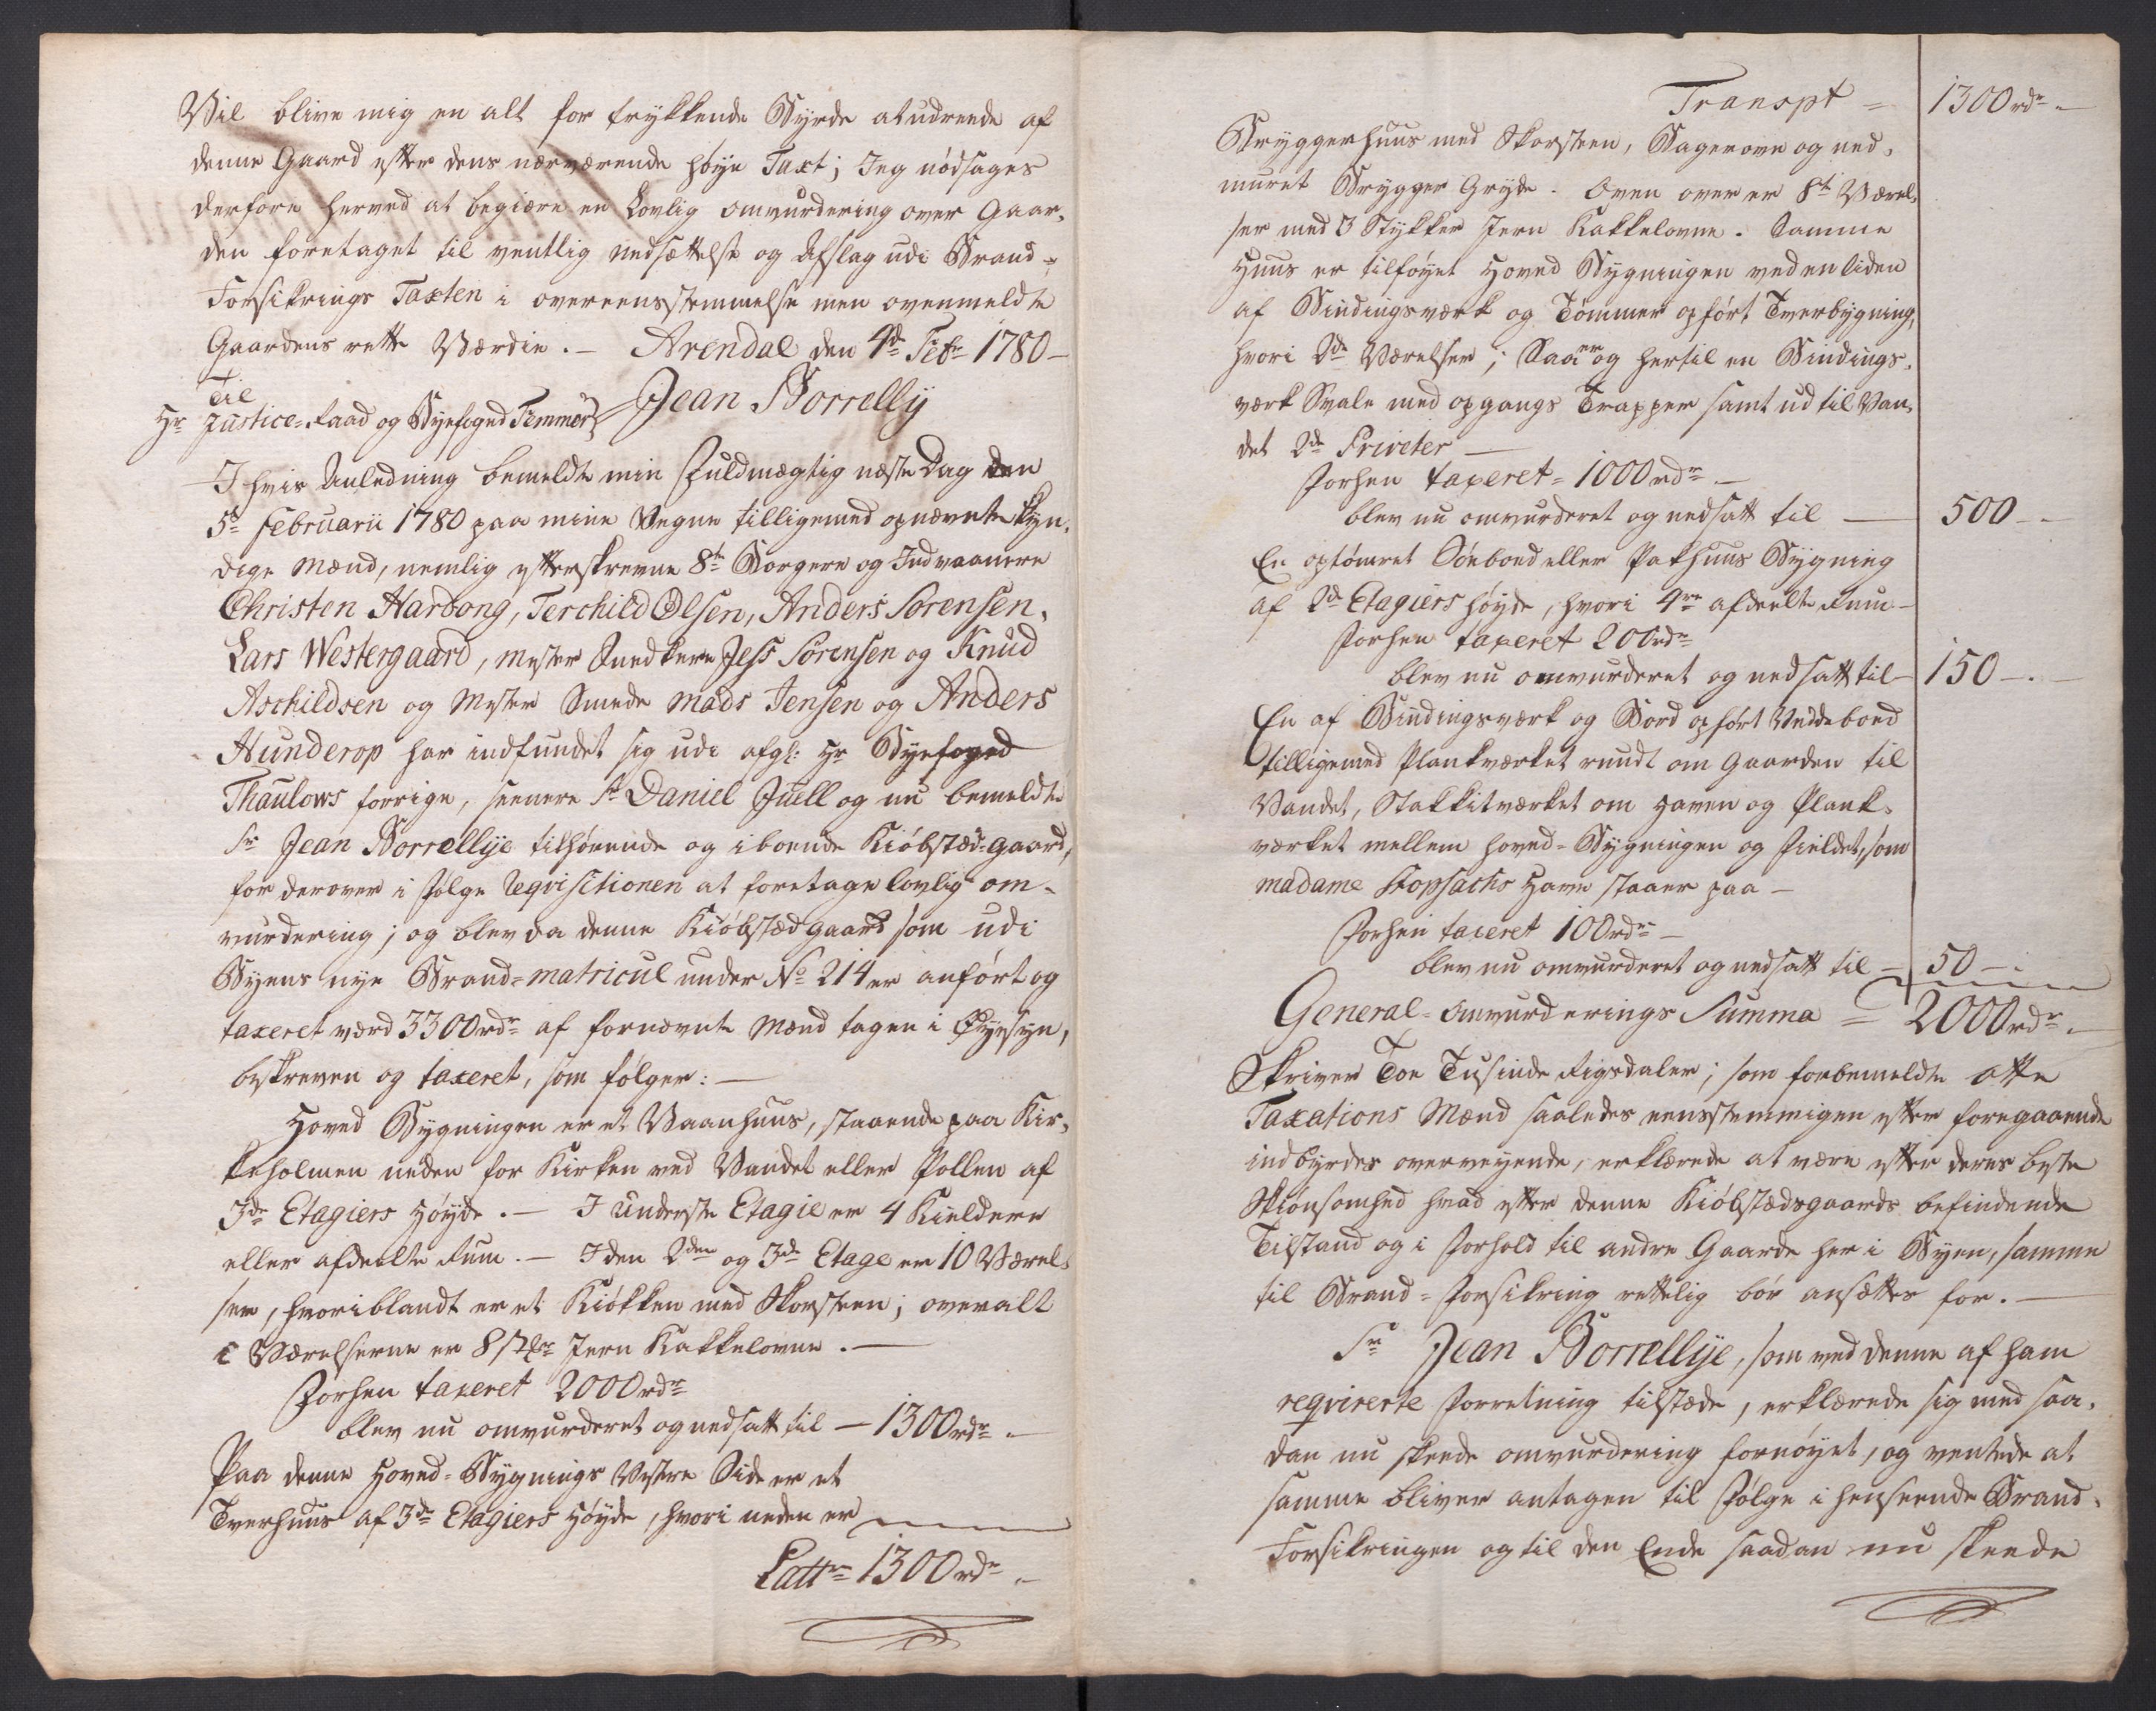 Vil blive mig en alt for trykkende Byrde at udreede af
denne Gaard efter dens nærværende høye Taxt; Jeg nødsages
derfore herved at begiære en Lovlig omvurdering over Gaar-
den foretaget til ventlig nedsættelse og Afslag udi Brand-
Forsikrings Taxten i overeensstemmelse men ovenmeldte
Gaardens rette Værdie. – Arendal den 4de Febr 1780 –
Jean Borrelly
Til
Hr Justice-Raad og Byefoged Tremmer
I hvis Anledning bemeldte min Fuldmægtig næste Dag den
5te Februarii 1780 paa mine Vegne tilligemed opnævnte kyn-
dige Mænd, nemlig efterskrevne 8te Borgere og Indvaanere
Christen Harbong, Terchild Olsen, Anders Sørensen,
Lars Westergaard, Mester Snedkere Jess Sørensen og Knud
Aschildsen og Mester Smede Mads Jensen og Anders
Hunderop har indfundet sig udi afgl: Hr Byefoged
Thaulows forrige, seenere Sr Daniel Juell og nu bemeldte
Sr Jean Borrellije tilhørende og iboende Kiøbstæd-gaard,
for derover i Følge Reqvisitionen at foretage lovlig om-
vurdering; og blev da denne Kiøbstæd gaard som udi
Byens nye Brand-matricul under No 214 er anført og
taxeret værd 3300 rdr af fornævnte Mænd tagen i Øyesyn,
beskreven og taxeret, som følger: –
Hoved Bygningen er et Vaanhuus, staaende paa Kir-
keholmen neden for Kirken ved Vandet eller Pollen af
3de Etagiers Høyde. – I Underste Etagie er 4 Kieldere
eller afdeelte Rum. – I den 2den og 3de Etage er 10 Værel-
ser, hvoriblandt er et Kiøkken med Skorsteen; overalt
i Værelserne er 8 Stkr Jern Kakkelovne. –
Forhen taxeret 2000 rdr
blev nu omvurderet og nedsatt til – 1300 rdr –
Paa denne Hoved-Bygnings Vestre Side er et
Tverhuus af 3de Etagiers Høyde, hvori neden er
Lattr 1300 rdr –
Transpt = 1300 rdr –
Bryggerhuus med Skorsteen, Bagerovn og ned-
muret Brygger Gryde. Oven over er 8te Værel-
ser med 3 Stykker Jern Kakkelovne. Samme
Huus er tilføyet Hoved Bygningen ved en liden
af Bindingsværk og Tømmer opført Tverbygning,
hvori 2de Værelser; Saa er og hertil en Bindings-
værk Svale med opgangs Trapper samt ud til Van-
det 2de Priveter –
Forhen taxeret = 1000 rdr –
blev nu omvurderet og nedsatt til – 500 –
En optømret Søeboed eller Pakhuus Bygning
af 2de Etagiers høyde, hvori 4re afdeelte Rum –
Forhen taxeret 200 rdr
blev nu omvurderet og nedsatt til – 150 –
En af Bindingsværk og Bord opført Vedeboed
tilligemed Plankværket rundt om Gaarden til
Vandet, Stakkitværket om Haven og Plank-
værket mellem Hoved-Bygningen og Fieldet, som
madame Kopsachs Have staaer paa –
Forhen taxeret 100 rdr –
blev nu omvurderet og nedsatt til – 50 –
General-omvurderings Summa = 2000 rdr –
Skriver Toe Tusinde Rigsdaler; som forbemeldte otte
Taxations Mænd saaledes eensstemmigen efter foregaaende
indbyrdes overveyende, erklærede at være efter deres beste
Skiønsomhed hvad efter denne Kiøbstædgaards befindende
Tilstand og i Forhold til andre Gaarde her i Byen, samme
til Brand-Forsikring rettelig bør ansættes for. –
Sr Jean Borrellije, som ved denne af ham
reqvirerte Forretning tilstæde, erklærede sig med saa-
dan nu skeede omvurdering fornøyet, og ventede at
samme bliver antagen til Følge i henseende Brand-
Forsikringen og til den Ende saadan nu skeede